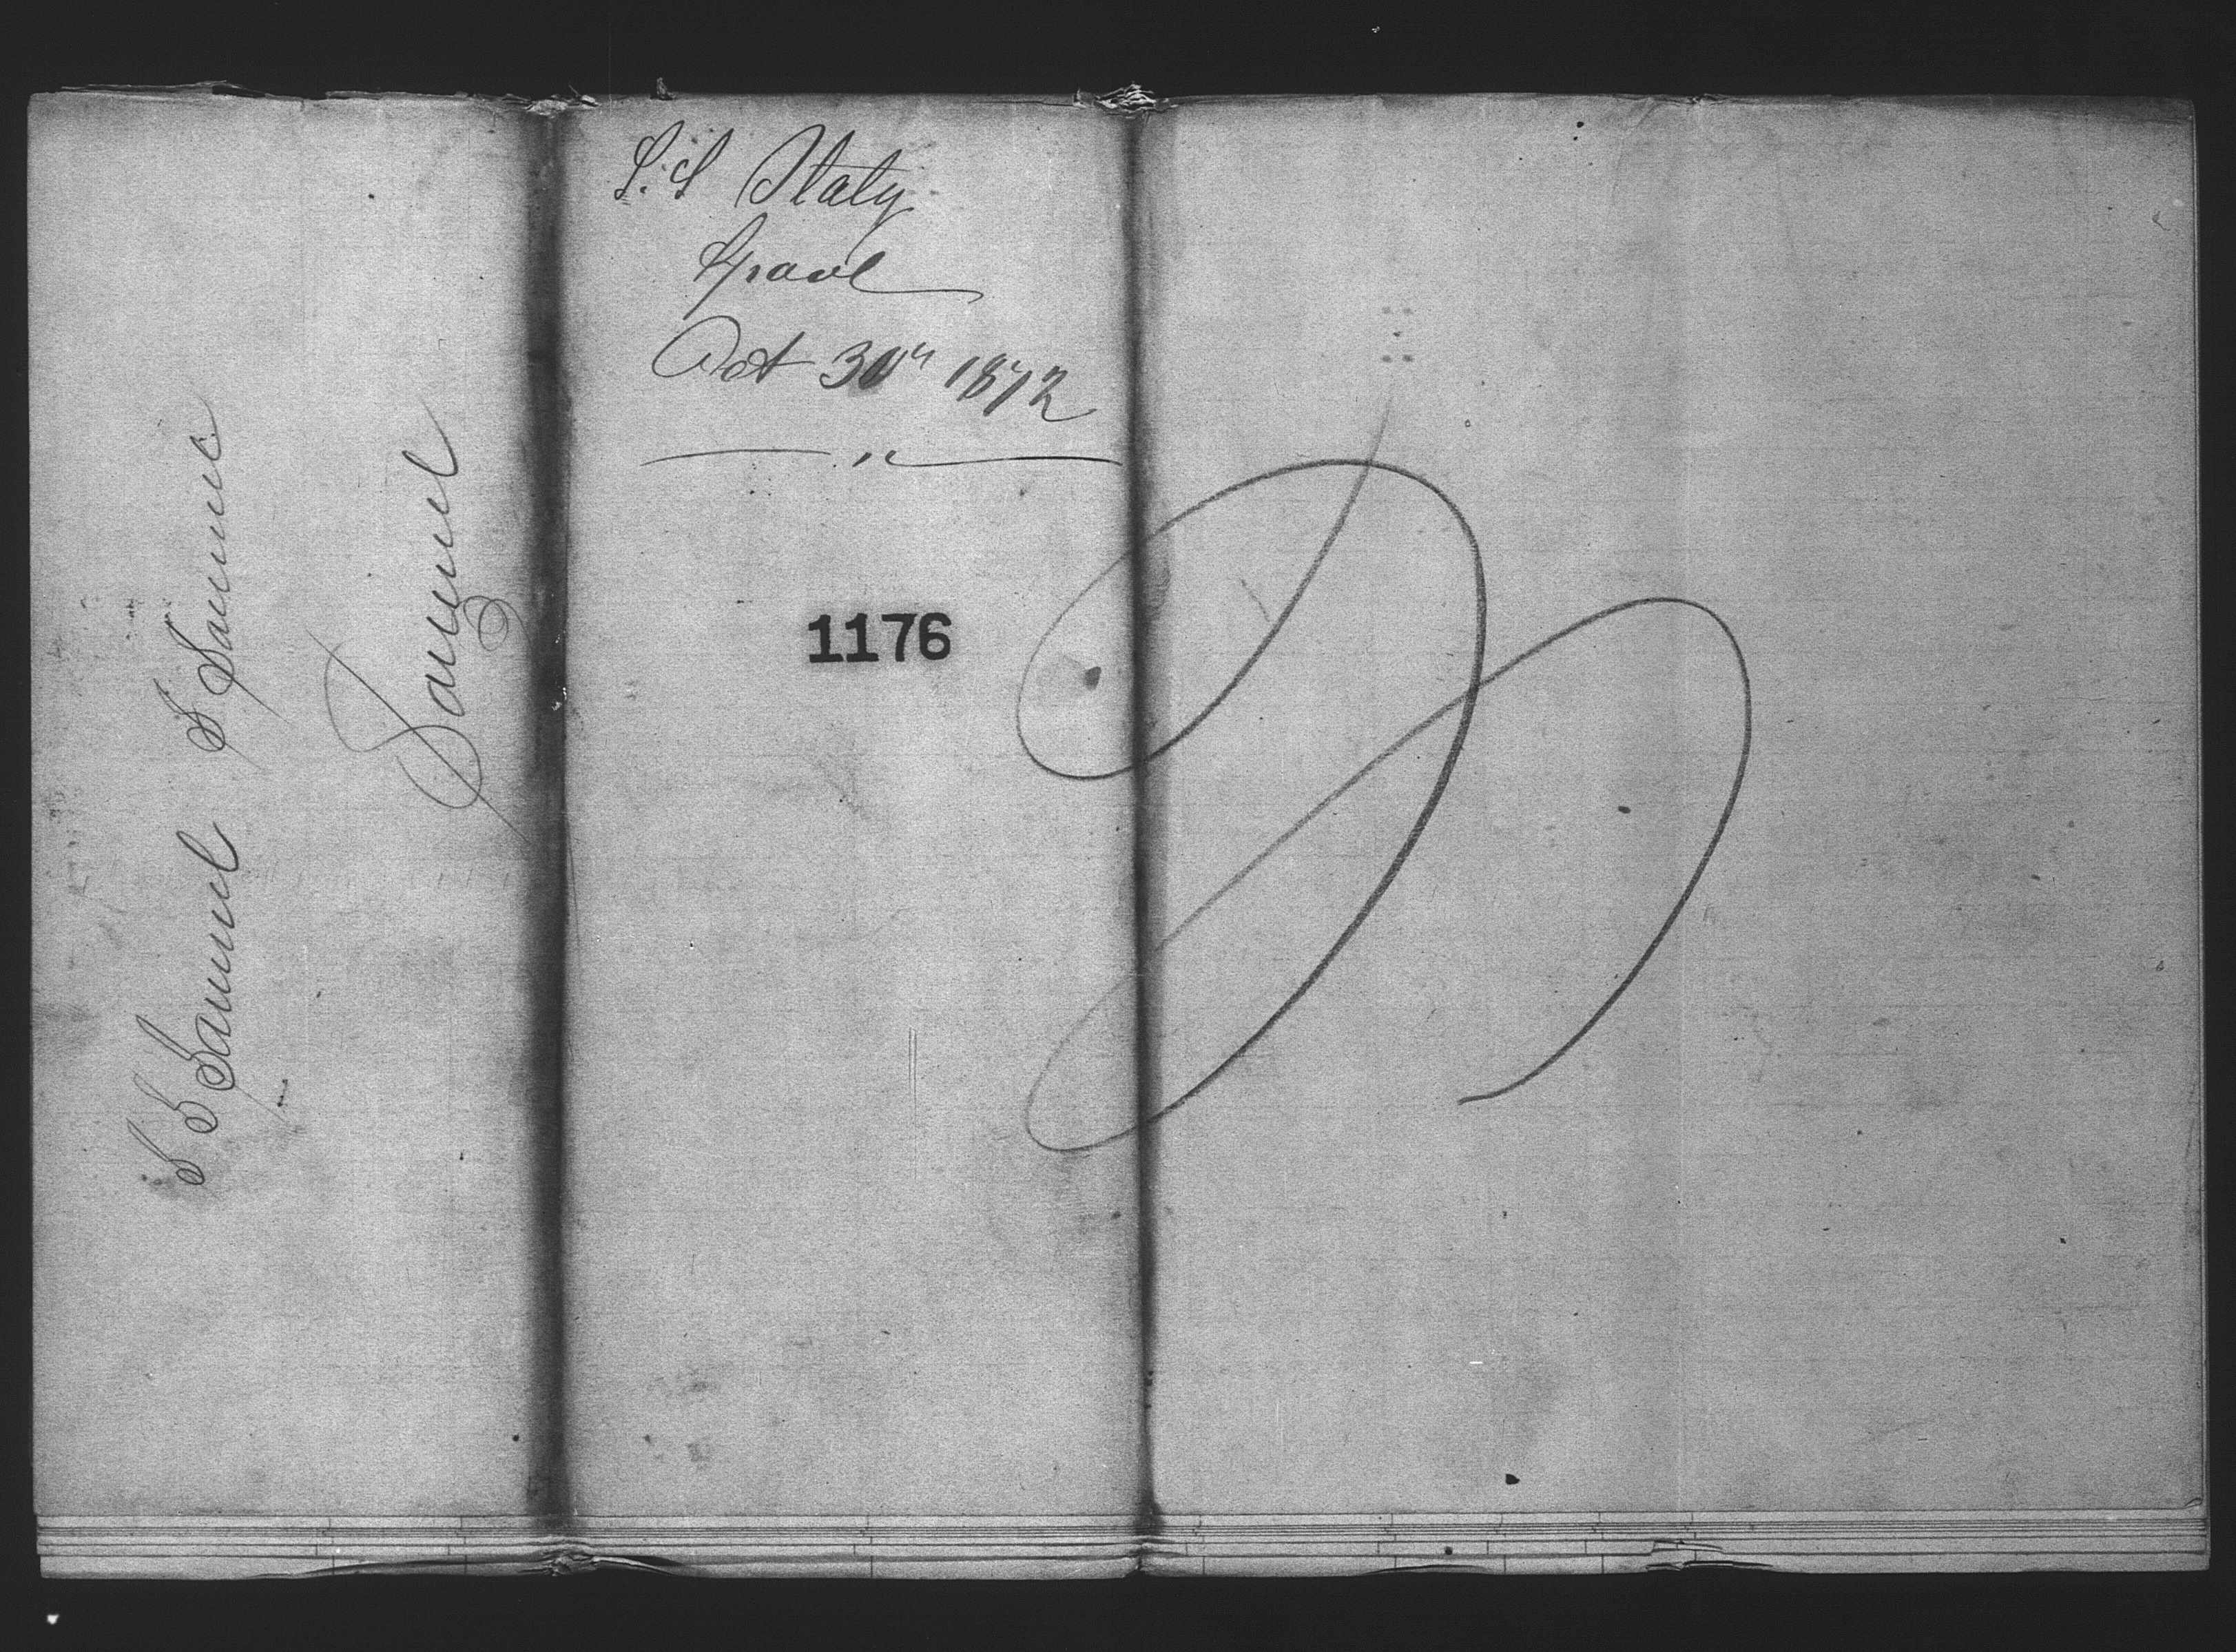 S. S Italy
Oct 30" 1872
1176
S S Samuel S Samue
Samuel